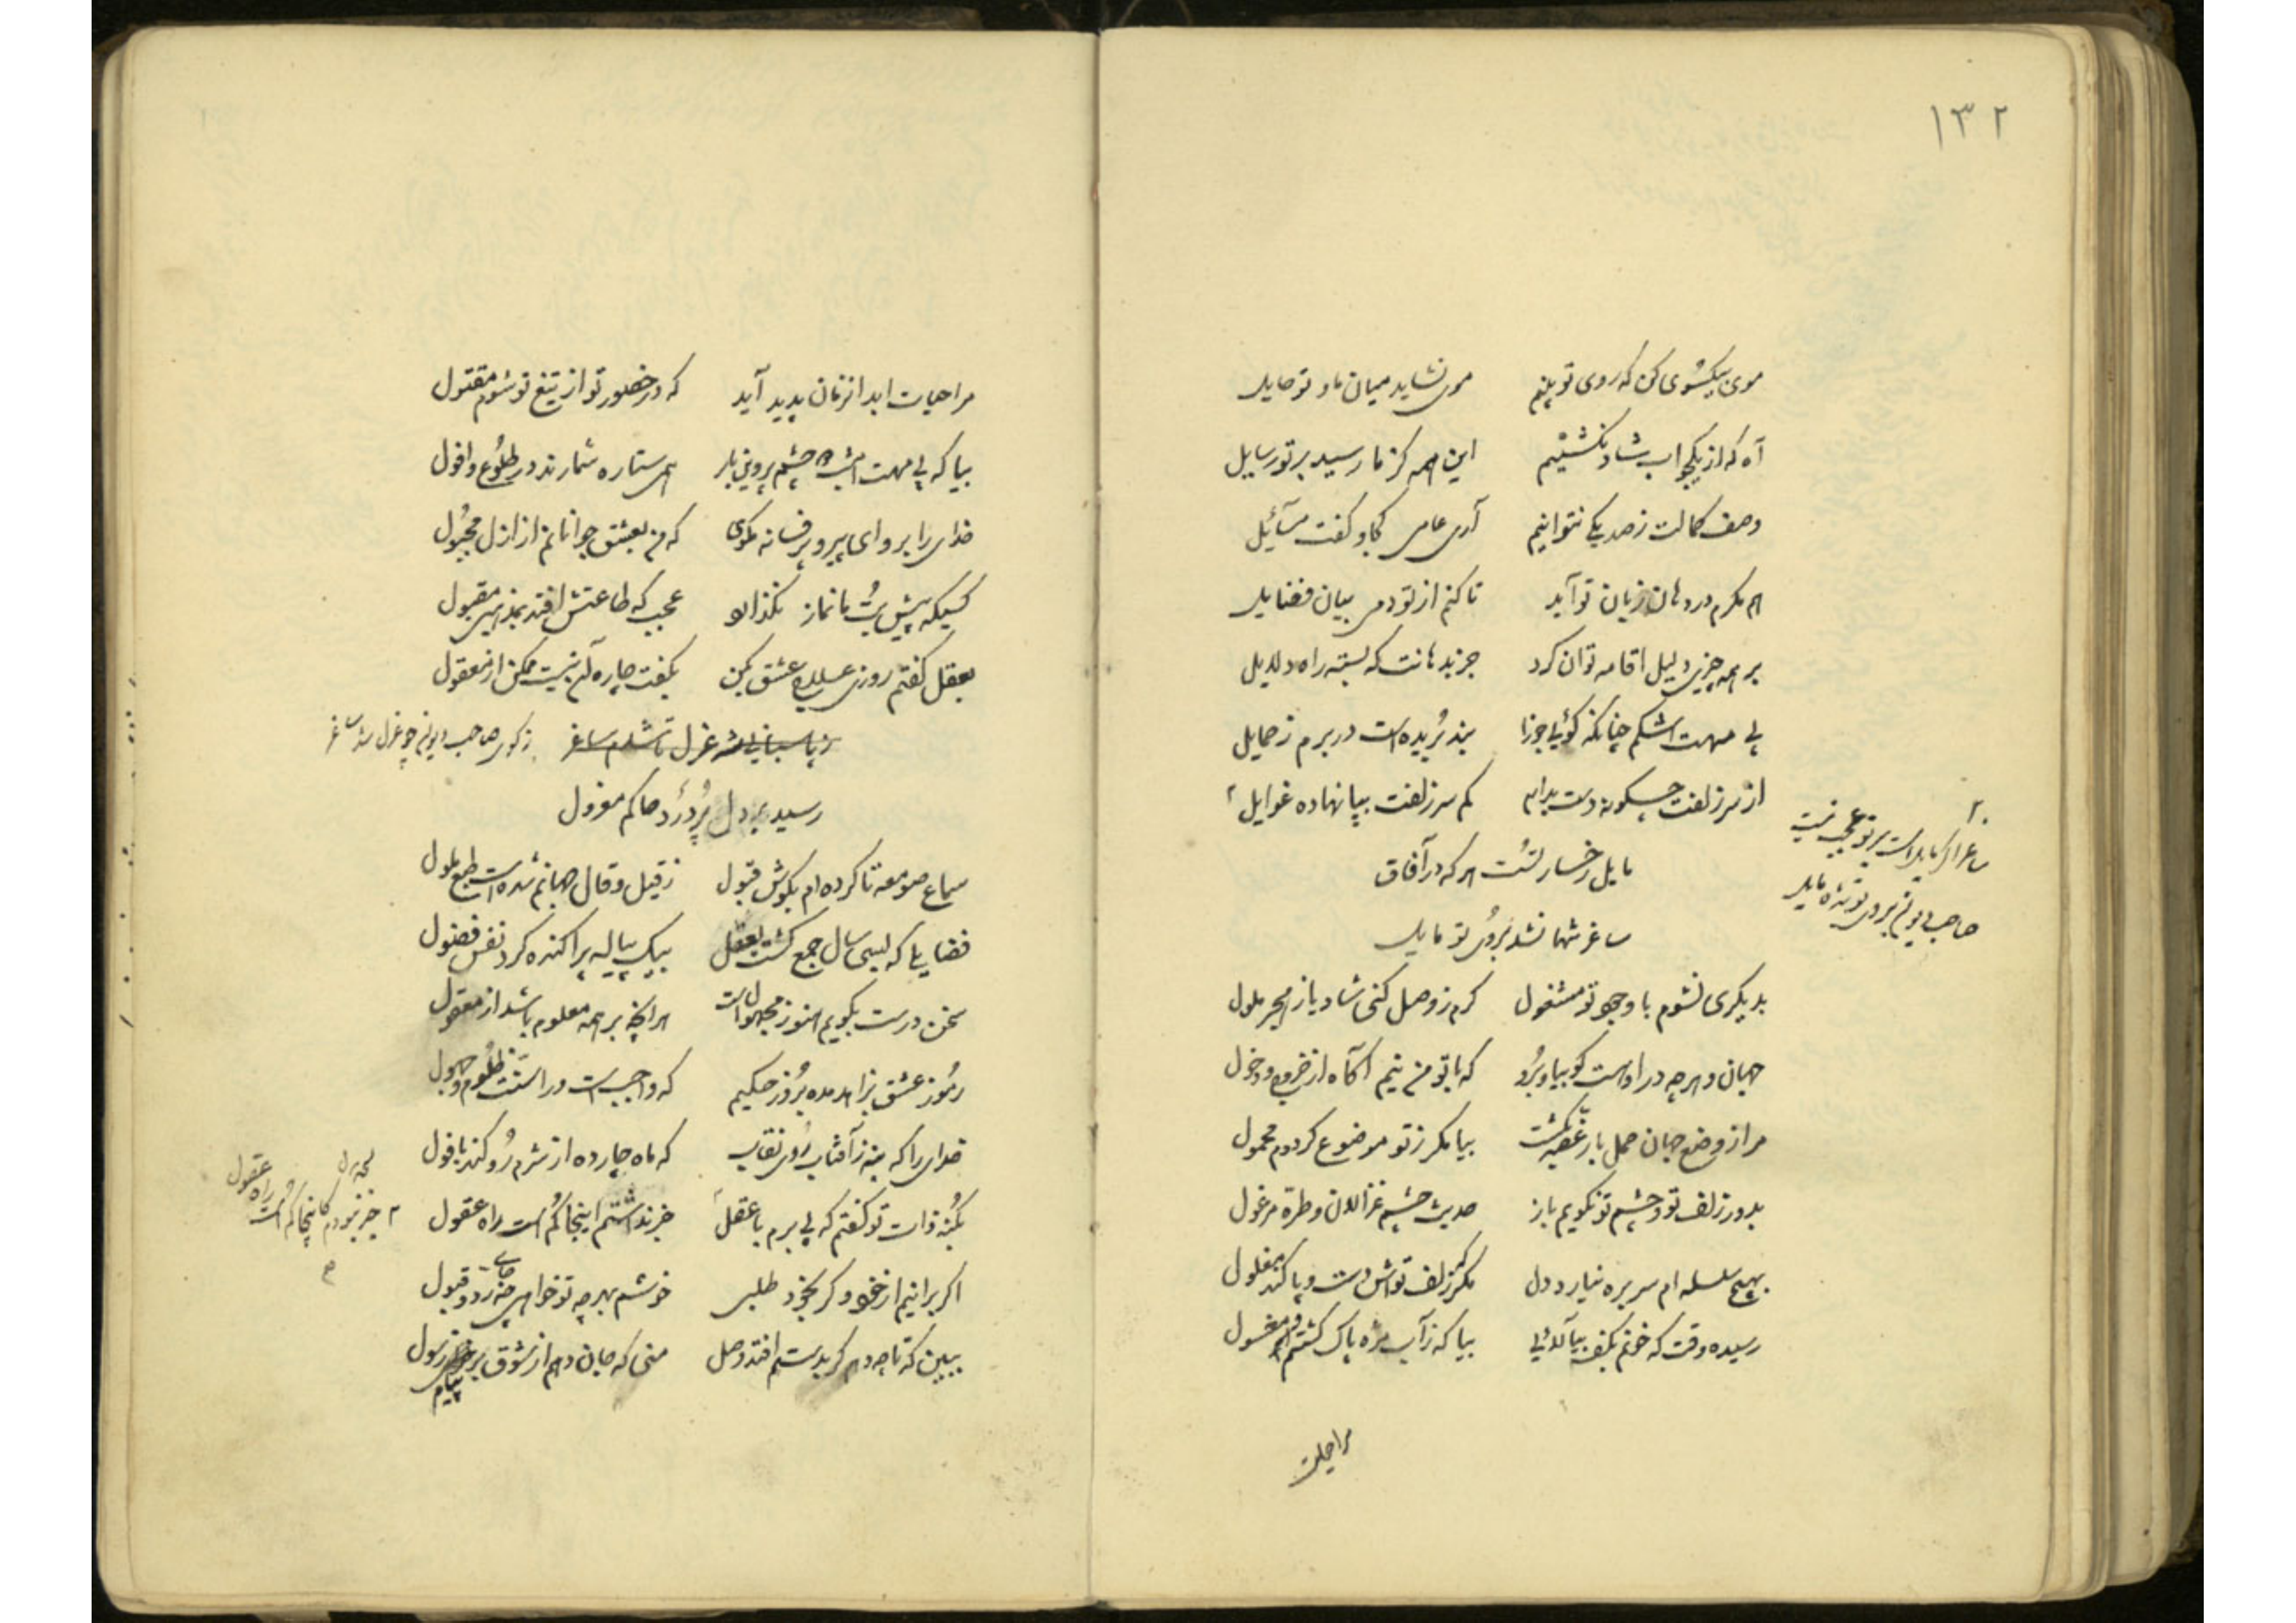 ۱۳۲
موی بیکسوی کن که روی تو بینم موی نشاید میان ما و تو حایل
آه که از یکجواب شاد نگشتیم این همه کز ما رسید بر تو رسایل
وصف کمالت ز صد یکی نتوانیم آری عامی کجا و کفت مسآئل
هم مکرم در دهان زبان تو آید تا کنم از تو دمی بیان فضایل
بر همه چیزی دلیل اقامه توان کرد جز بدهانت که بسته راه دلایل
بی مهت اشکم چنانکه گوئی جوزا بند بُریده است در برم ز حمایل
از سر زلفت چگونه دست بدارم کم سر زلفت بپا نهاده غوایل
ساغر اگر مایل است بر تو عجب نیست
صاحب دیوانم بروی تو شده مایل
مایل رخسار تُست هر که در آفاق
ساغر تنها نشد بُروی تو مایل
بدیگری نشوم با وجود تو مشغول گرم ز وصل کنی شاد یا ز هجر ملول
جهان و هر چه در او است گو بیا و برُو که با تو من نیم آگاه از خروج و دخول
مرا ز وضع جهان حمل بار غصّه بکشت بیا مگر ز تو موضوع گردم محمول
بدور زلف تو و چشم تو نگویم باز حدیث چشم غزالان و طرّه مرغول
بهیچ سلسله ام سر بره نیارد دل مگر ز زلف تواش دست و پا کنم مغلول
رسیده وقت که خونم بکف بیآلائی بیا که ز آب مژه پاک گشتم و مغسول
مراحیات
مرا حیات ابد انزمان پدید آید که در حضور تو از تیغ تو شوم مقتول
بیا که بی مهت امشب دو چشم پروین بار همی ستاره شمارند در طلوُع و افول
خدای را برو ای پیر و پر فسانه مگوی که من بعشق جوانانم از ازل مجبُول
کسیکه پیش بتُ ما نماز نگذارد عجب که طاعتش افتد بمذهبی مقبول
بعقل گفتم روزی علاج عشق بکن بگفت چاره آن نیست ممکن از معقول
ز کوی صاحب دیوان چو عزل شد ساغر
رسید بر دل پُر دَرد حاکم معزول
سماع صومعه تا کرده ام بگوش قبول ز قیل و قال جهانم شده است طبع ملول
فضایلی که بسی سال جمع گشت بعقل بیک پیاله پراکنده کرد نفس فضول
سخن درست بگویم هنوز مجهول است هر انچه بر همه معلوم باشد از معقول
رمُوز عشق بزاهد مده برُوز حکیم که واجب است در استنت ظلُوم و جهول
خدای را که منه ز آفتاب رُوی نقاب که ماه چارده از شرم رُو کند بافول
بکُنه ذات تو گفتم که پی برم با عقل خبر نداشتم اینجا گُم است راه عقول
خبر نبودم کاینجا گُم است راه عقول
اگر برانیم از خود و گر بخود طلبی خوشم بهر چه تو خواهی ز رد و قبول
ببین که تا چه دهم گر بدستم افتد وصل منی که جان دهم از شوق بر پیام رسول